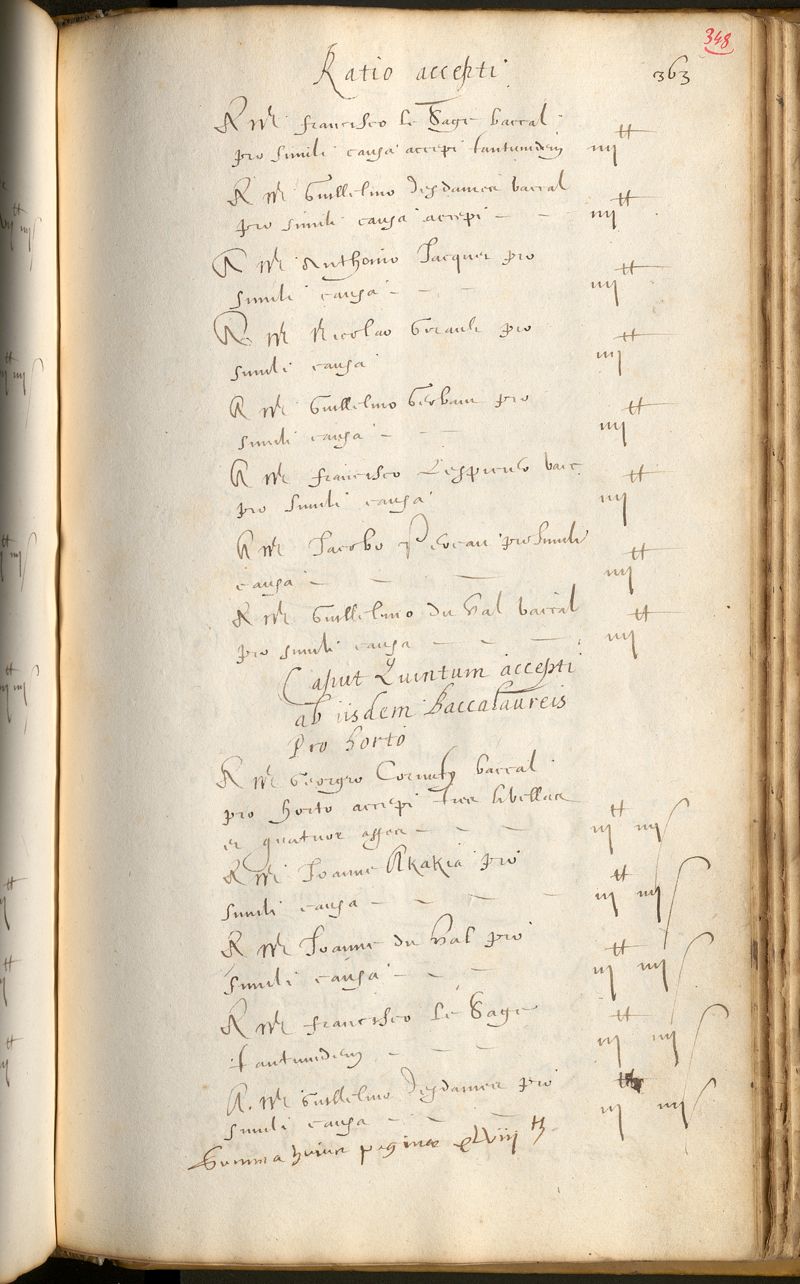 348
Ratio accepti 363
A Mro Francisco Le Sage baccal
pro simili causa accepi tantumdem iiii ₶
A Mro Guillelmo Desdames baccal
pro simili causa accepi — — iiii ₶
A Mro Anthonio Jacques pro
simili causa — — — iiii ₶
A Mro Nicolao Gerault pro
simili causa iiii ₶
A Mro Guillelmo pro
simili causa — — iiii ₶
A Mro Francisco Lespicier bacc
pro simili causa iiii ₶
A Mro Jacobo pro simili
causa — — — iiii ₶
A Mro Guillelmo du Val baccal
pro simili causa — — — iiii ₶
Caput Quintum accepti
ab iisdem Baccalaureis
Pro horto
A Mro Georgio Cornuty baccal
pro horto accepi tres libellas
et quatuor asses — — — iii ₶ iiii s
A Mro Joanne Akakia pro
simili causa — — — — iii ₶ iiii s
A Mro Joanne du Val pro
simili causa — — — iii ₶ iiii s
A Mro Francisco Le Sage
tantumdem — — — iii ₶ iiii s
A. Mro Guillelmo Desdames pro
simili causa — — — iii ₶ iiii s
Summa huius paginae xLviii ₶